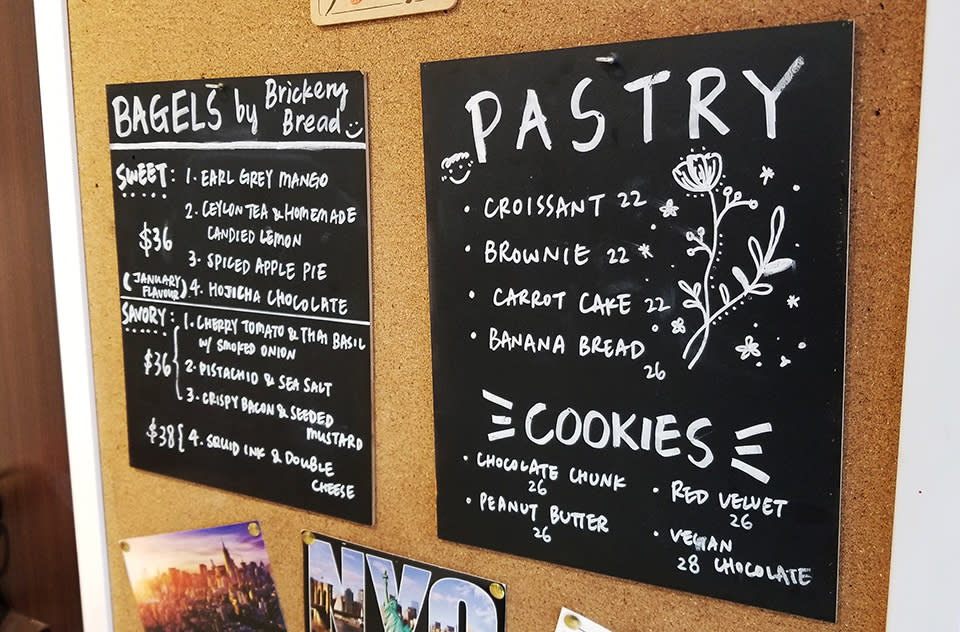 BAGELS by Brickery
Bread
SWEET: 1. EARL GREY MANGO
2. CEYLON TEA & HOMEMADE
CANDIED LEMON
$36
3. SPICED APPLE PIE
(JANUARY
FLAVOUR) 4. HOJICHA CHOCOLATE
SAVORY: 1. CHERRY TOMATO & THAI BASIL
W/ SMOKED ONION
$36
2. PISTACHIO & SEA SALT
3. CRISPY BACON & SEEDED
MUSTARD
$38 { 4. SQUID INK & DOUBLE
CHEESE
PASTRY
• CROISSANT 22
• BROWNIE 22
• CARROT CAKE 22
• BANANA BREAD
26
COOKIES
• CHOCOLATE CHUNK
26
• PEANUT BUTTER
26
• RED VELVET
26
• VEGAN
28 CHOCOLATE
NYC